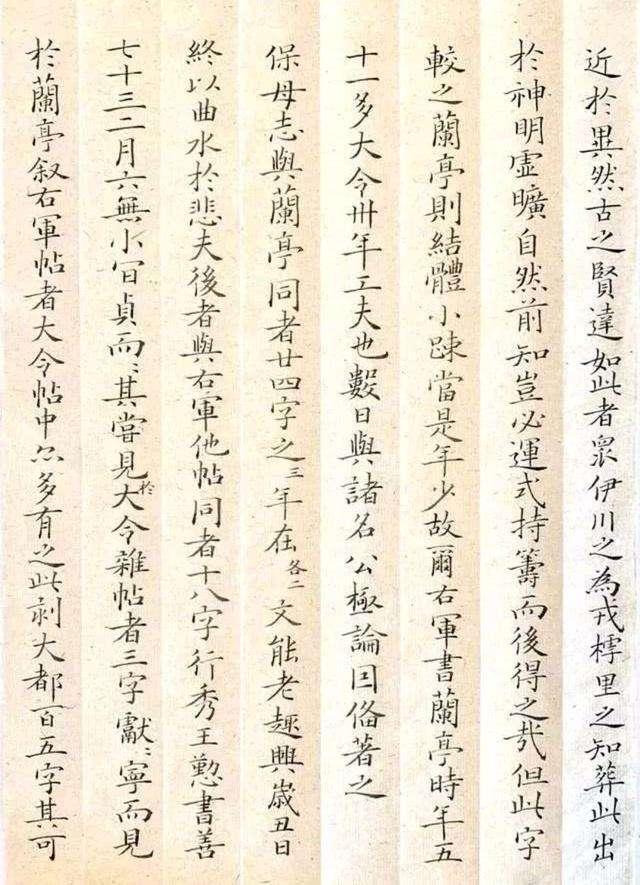 近於異然古之賢達如此者衆伊川之為戎樗里之知葬此出
於神明虛曠自然前知豈必運式持籌而後得之哉但此字
較之蘭亭則結體小踈當是年少故爾右軍書蘭亭時年五
十一多大令卅年工夫也數日與諸名公極論因俻著之
保母志與蘭亭同者廿四字之三年在各二文能老趣興歲丑日
終以曲水於悲夫後者與右軍他帖同者十八字行秀王懃書善
七十三二月六無小宮貞而〻其嘗見於大令雜帖者三字獻〻寧而見
於蘭亭叙右軍帖者大令帖中亦多有之此刻大都百五字其可